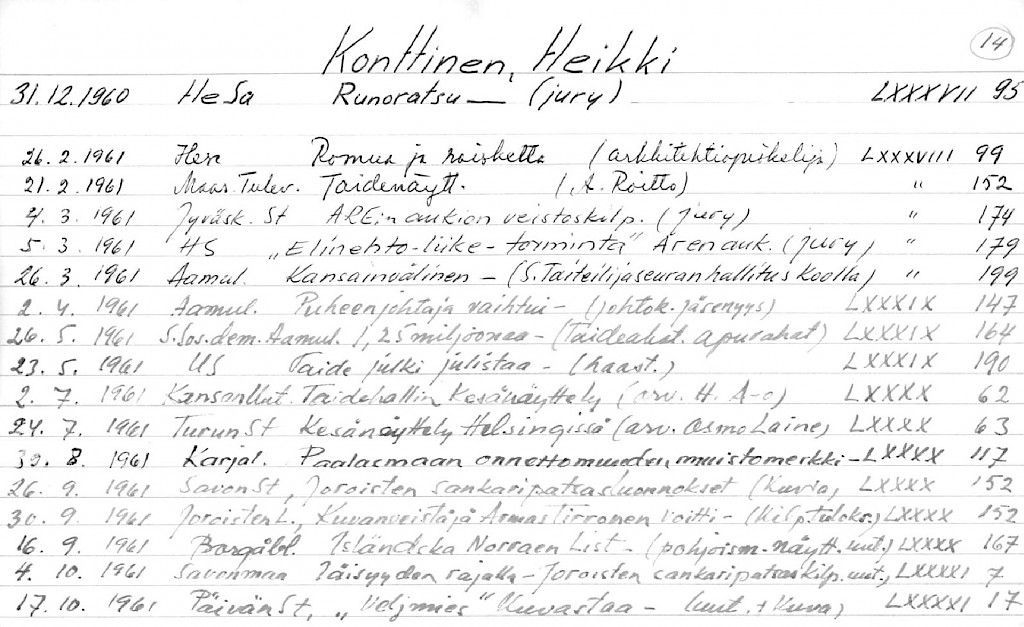 14
Konttinen, Heikki
31.12.1960 HeSa Runoratsu — (jury) LXXXVII 95
26.2.1961 Romua ja (arkkitehtiopiskelija) LXXXVIII 99
21.2.1961 Maas. Tulev. Taidenäytt. (A. Roitto) " 152
4.3.1961 Jyväsk. St ARE:n aukion veistoskilp. (jury) " 174
5.3.1961 HS „Elinehto-liike-toiminta" Arenauk. (jury) " 179
26.3.1961 Aamul. Kansainvälinen – (S. Taiteilijaseuran hallitus koolla) " 199
2.4.1961 Aamul. Puheenjohtaja vaihtui – (johtok. jäsenyys) LXXXIX 147
26.5.1961 S.Sos.dem. Aamul. 1,25 miljoonaa – (Taideakat. apurahat) LXXXIX 164
23.5.1961 US Taide julki julistaa – (haast.) LXXXIX 190
2.7.1961 Kansan Uut. Taidehallin Kesänäyttely (arv. H. A-o) LXXXX 62
24.7.1961 Turun St Kesänäyttely Helsingissä (arv. Osmo Laine) LXXXX 63
30.8.1961 Karjal. Paalasmaan onnettomuuden muistomerkki – LXXXX 117
26.9.1961 Savon St, Joroisten sankaripatsasluonnokset (Kuvia, LXXXX 152
30.9.1961 Joroisten L., Kuvanveistäjä Armas Tirronen voitti – (Kilp.tuloks.) LXXXX 152
16.9.1961 Borgåbl. Isländska Norraen List – (pohjoism. näytt. uut.) LXXXX 167
4.10.1961 Savonmaa Täisyyden rajalla – Joroisten sankaripatsaskilp. uut., LXXXXI 7
17.10.1961 Päivän St, „Veljmies" Kuvastaa – (uut. + Kuva) LXXXXI 17